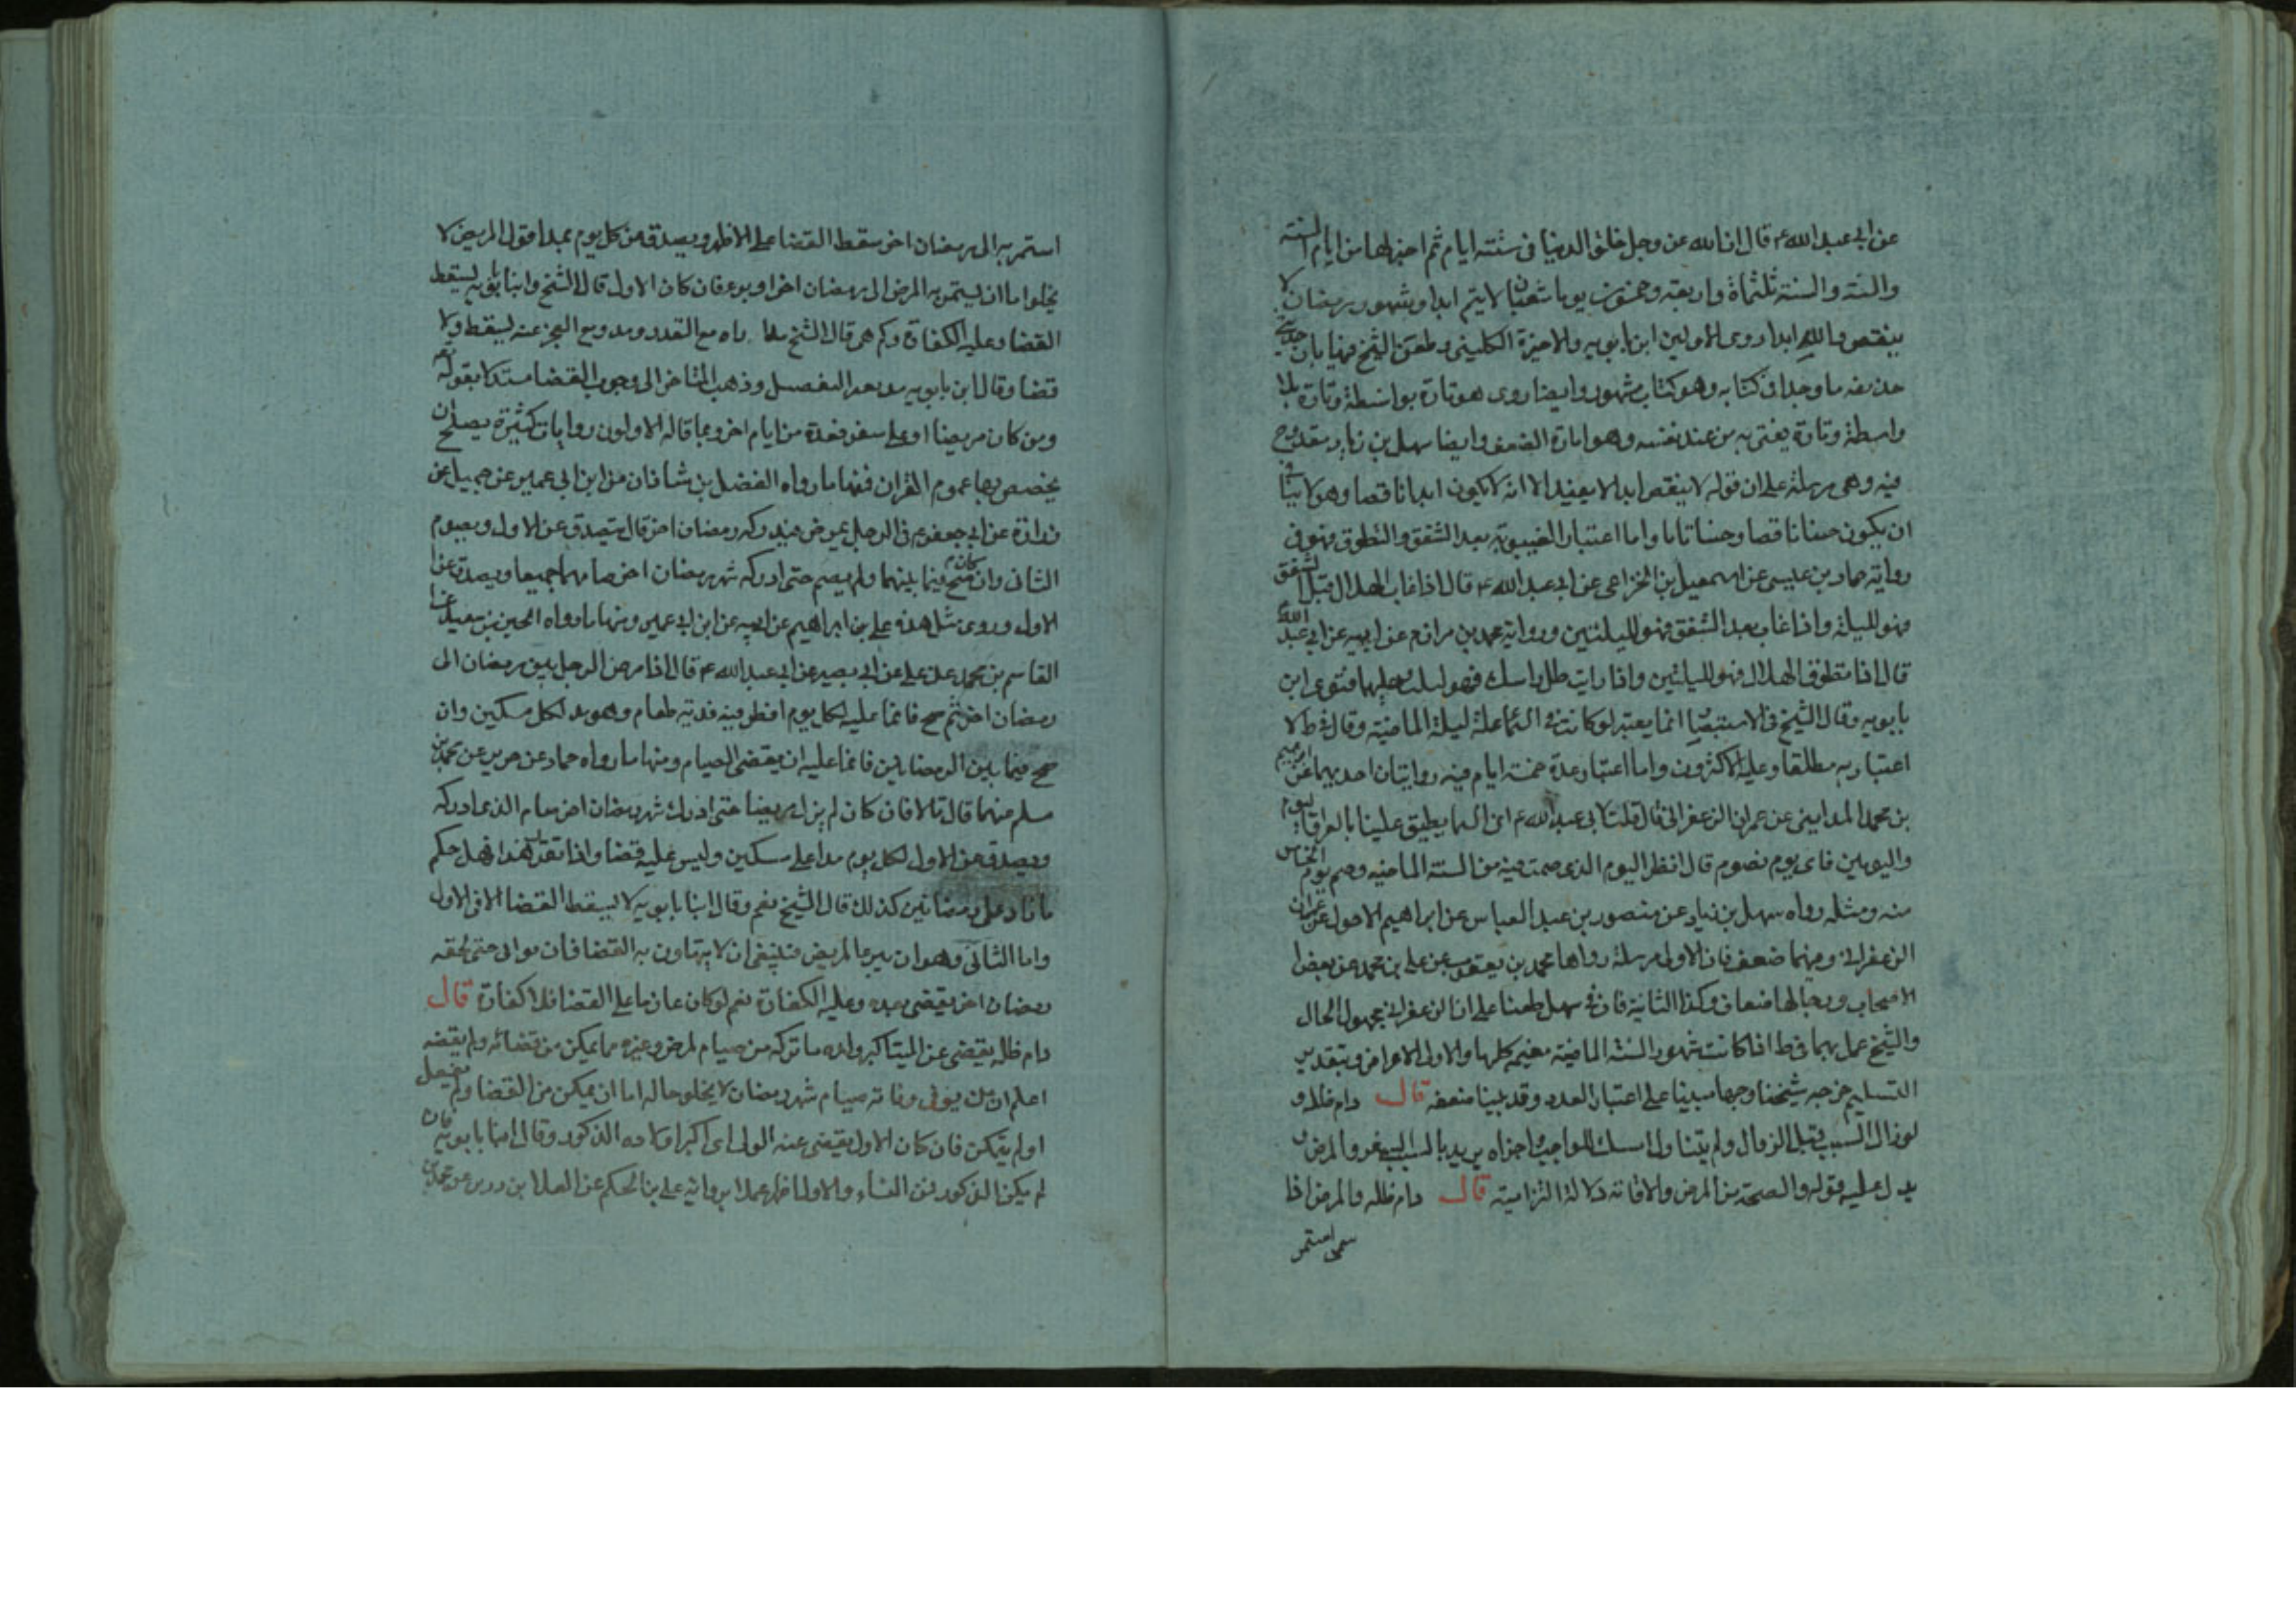 عن ابي عبد الله ع قال ان الله عز وجل خلق الدنيا في ستة ايام ثم اختزلها من ايام السنة
والسنة والسنة ثلثمأة واربعة وخمسون يوما شعبان لا يتم ابدا وشهر رمضان لا
ينقص والله ابدا روى الاولين ابن بابويه والاخيرة الكليني وطعن الشيخ فيها بان حديث
حذيفه ما وجد في كتابه وهو كتاب مشهور وايضا روى هو تارة بواسطة وتارة بلا
واسطة وتارة يفتى به من عند نفسه وهو امارة الضعف وايضا سهل بن زياد مقدوح
فيه وهي مرسلة على ان قوله لا ينقص ابدا لا يفيد الا انه لا يكون ابدا ناقصا وهو لا ينافي
ان يكون حينا ناقصا وحينا تاما واما اعتبار الغيبوبة بعد الشفق والتطوق فهو في
رواية حماد بن عيسى عن اسمعيل بن الخزاعي عن ابي عبد الله ع قال اذا غاب الهلال قبل الشفق
فهو لليلة واذا غاب بعد الشفق فهو لليلتين ورواية محمد بن مرازم عن ابيه عن ابي عبد الله ع
قال اذا تطوق الهلال فهو لليلتين واذا رايت ظل راسك فهو لثلث وعليها فتوى ابن
بابويه وقال الشيخ في الاستبصار انما يعتبر لو كانت في السماء علة لليلة الماضية وقال في ط لا
اعتبار به مطلقا وعليه الاكثرون واما اعتبار عدة خمسة ايام فيه روايتان احديهما عن ابرهيم
بن محمد المدايني عن عمران الزعفراني قال قلت لابي عبد الله ع ان السما يطبق علينا بالعراق اليوم
واليومين فاى يوم نصوم قال انظر اليوم الذى صمت فيه من السنة الماضيه وصم يوم الخامس
منه ومثله رواه سهل بن زياد عن منصور بن عبد العباس عن ابراهيم الاحول عن عمران
الزعفراني وفيهما ضعف فان الاولى مرسلة رواها محمد بن يعقوب عن علي بن محمد عن بعض
الاصحاب ورجالها ضعاف وكذا الثانية فان في سهل طعنا على ان الزعفراني مجهول الحال
والشيخ عمل بهما في ط اذا كانت شهور السنة الماضية مغيمه كلها والاولى الاعراض وبتقدير
التسليم خرجه شيخنا وجها مبنيا على اعتبار العدد وقد بينا ضعفه قال دام ظله و
لو زال السبب قبل الزوال ولم يتناول امسك للواجب واجزاه يريد بالسبب السفر والمرض و
يدل عليه قوله والصحة من المرض والاقامة دلالة التزامية قال دام ظله والمرض اذا
استمر
استمر به الى رمضان اخر سقط القضا على الاظهر ويصدق عن كل يوم بمد اقول المريض لا
يخلوا ما ان يستمر به المرض الى رمضان اخر او يبرء فان كان الاول قال الشيخ وابنا بابويه يسقط
القضا وعليه الكفارة وكم هي قال الشيخ مدان مع القدرة ومد مع العجز عنه يسقط ولا
قضا وقال ابن بابويه مد بعد التفصيل وذهب المتاخر الى وجوب القضا مستدلا بقوله تعالى
ومن كان مريضا او على سفر فعدة من ايام اخر وبما قاله الاولون روايات كثيرة يصلح ان
يخصص بها عموم القران فمنها ما رواه الفضل بن شاذان عن ابن ابي عمير عن جميل عن
زرارة عن ابي جعفر ع في الرجل يمرض فيدركه رمضان اخر قال يتصدق عن الاول ويصوم
الثاني وان كان صح فيما بينهما ولم يصم حتى ادركه شهر رمضان اخر صامهما جميعا ويصدق عن
الاول وروى مثل هذه على بن ابراهيم عن ابيه عن ابن ابي عمير ومنها ما رواه الحسين بن سعيد عن
القاسم بن محمد عن علي عن ابي بصير عن ابي عبد الله ع قال اذا مرض الرجل بين رمضان الى
رمضان اخر ثم صح فانما عليه لكل يوم افطر فيه فدية طعام وهو مد لكل مسكين وان
صح فيما بين الرمضانين فانما عليه ان يقضى الصيام ومنها ما رواه حماد عن حريز عن محمد بن
مسلم عنهما قال قالا فان كان لم يزل مريضا حتى ادرك شهر رمضان اخر صام الذى ادركه
ويصدق عن الاول لكل يوم مدا على مسكين وليس عليه قضا واذا تقرر هذا فهل حكم
ما زاد على رمضانين كذلك قال الشيخ نعم وقال ابنا بابويه لا يسقط القضا الا في الاول
واما الثاني وهو ان يبرء المريض فينبغي ان لا يتهاون به القضا فان توانى حتى لحقه
رمضان اخر يقضى بعده وعليه الكفارة نعم لو كان عازما على القضا فلا كفارة قال
دام ظله يقضى عن الميت اكبر ولده ما تركه من صيام لمرض وغيره مما يمكن من قضائه ولم يقضه
اعلم ان من يتوفى وفاته صيام شهر رمضان لا يخلو حاله اما ان يمكن من القضا ولم يفعل
او لم يتمكن فان كان الاول يقضى عنه الولى اى اكبر اولاده الذكور وقال ابنا بابويه فان
لم يكن الذكور فمن النساء والاول اظهر عملا برواية على بن الحكم عن العلا بن رزين عن محمد بن